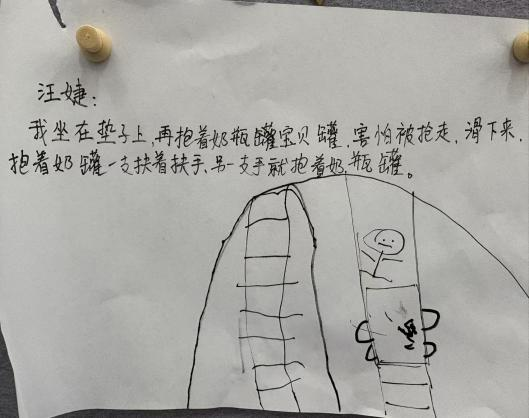 汪婕：
我坐在垫子上，再抱着奶瓶罐宝贝罐，害怕被抢走，滑下来，
抱着奶罐一支扶着扶手、另一支手就抱着奶瓶罐。